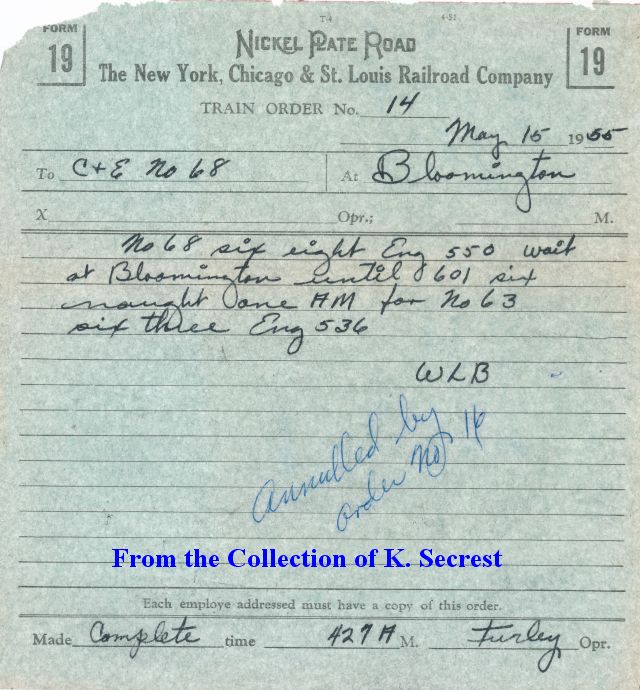 T-4 4-51
FORM 19
NICKEL PLATE ROAD
FORM 19
The New York, Chicago & St. Louis Railroad Company
TRAIN ORDER No. 14
May 15 1955
To C+E No 68 At Bloomington
X Opr.; M.
No 68 six eight Eng 550 wait
at Bloomington until 601 six
naught one AM for No 63
six three Eng 536
WLB
Annulled by
order No 16
From the Collection of K. Secrest
Each employe addressed must have a copy of this order.
Made Complete time 427 A M. Furley Opr.